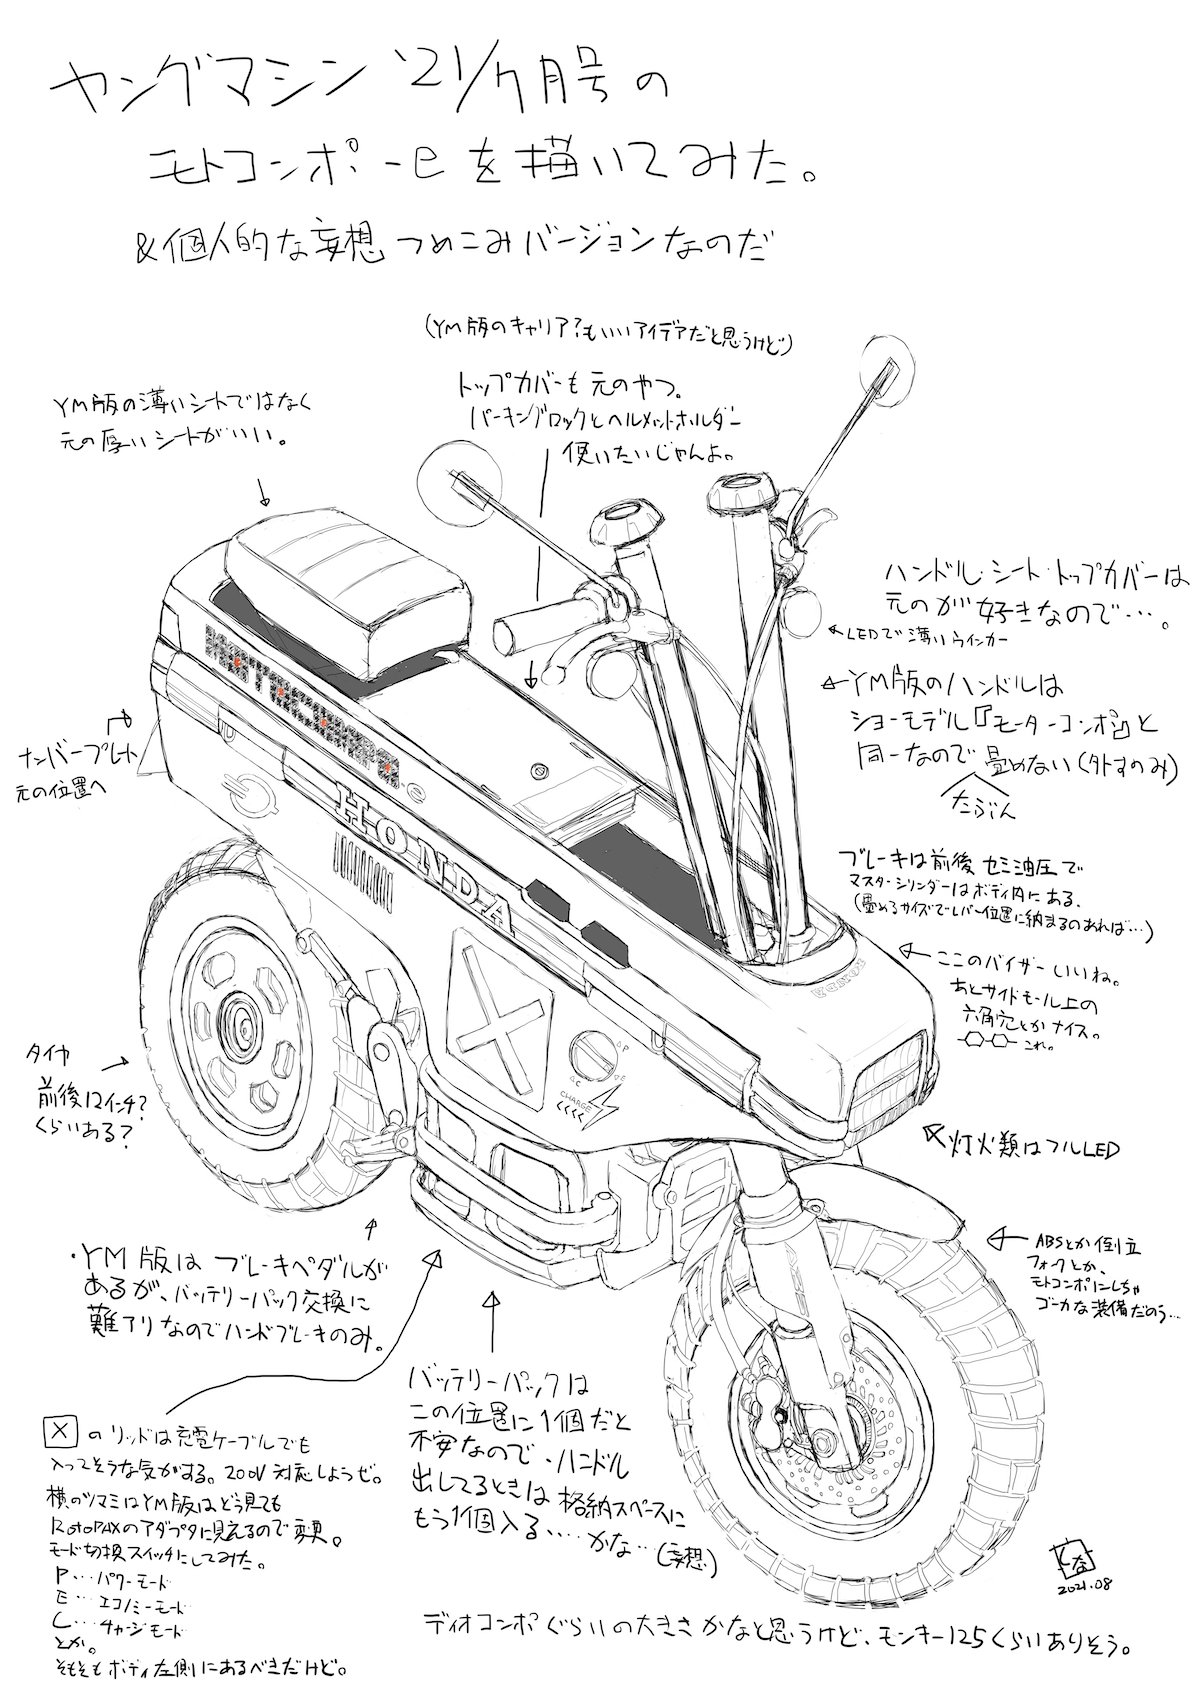 ヤングマシン '21/7月号の
モトコンポ-eを描いてみた。
&個人的な妄想つめこみバージョンなのだ
(YM版のキャリア?もいいアイデアだと思うけど)
トップカバーも元のやつ。
パーキングロックとヘルメットホルダー
使いたいじゃんよ。
YM版の薄いシートではなく
元の厚いシートがいい。
ハンドル・シート・トップカバーは
元のが好きなので…。
LEDで薄いウインカー
YM版のハンドルは
ショーモデル『モーターコンポ』と
同一なので畳めない(外すのみ)
たぶん
ナンバープレート
元の位置へ
MOTOCOMPO-e
HONDA
ブレーキは前後セミ油圧で
マスターシリンダーはボディ内にある。
(畳めるサイズでレバー位置に納まるのあれば…)
HONDA
ここのバイザーいいね。
あとサイドモール上の
六角穴とかナイス。
これ。
P
E
C
CHARGE
タイヤ
前後12インチ?
くらいある?
灯火類はフルLED
ABSとか倒立
フォークとか、
モトコンポにしちゃ
ゴーカな装備だのう…
・YM版はブレーキペダルが
あるが、バッテリーパック交換に
難アリなのでハンドブレーキのみ。
バッテリーパックは
この位置に1個だと
不安なので、ハンドル
出してるときは格納スペースに
もう1個入る……かな…(妄想)
Xのリッドは充電ケーブルでも
入ってそうな気がする。200V対応しようぜ。
横のツマミはYM版はどう見ても
ROTOPAXのアダプタに見えるので変更。
モード切換スイッチにしてみた。
P…パワーモード
E…エコノミーモード
C…チャージモード
とか。
そもそもボディ左側にあるべきだけど。
2021.08
ディオコンポぐらいの大きさかなと思うけど、モンキー125くらいありそう。